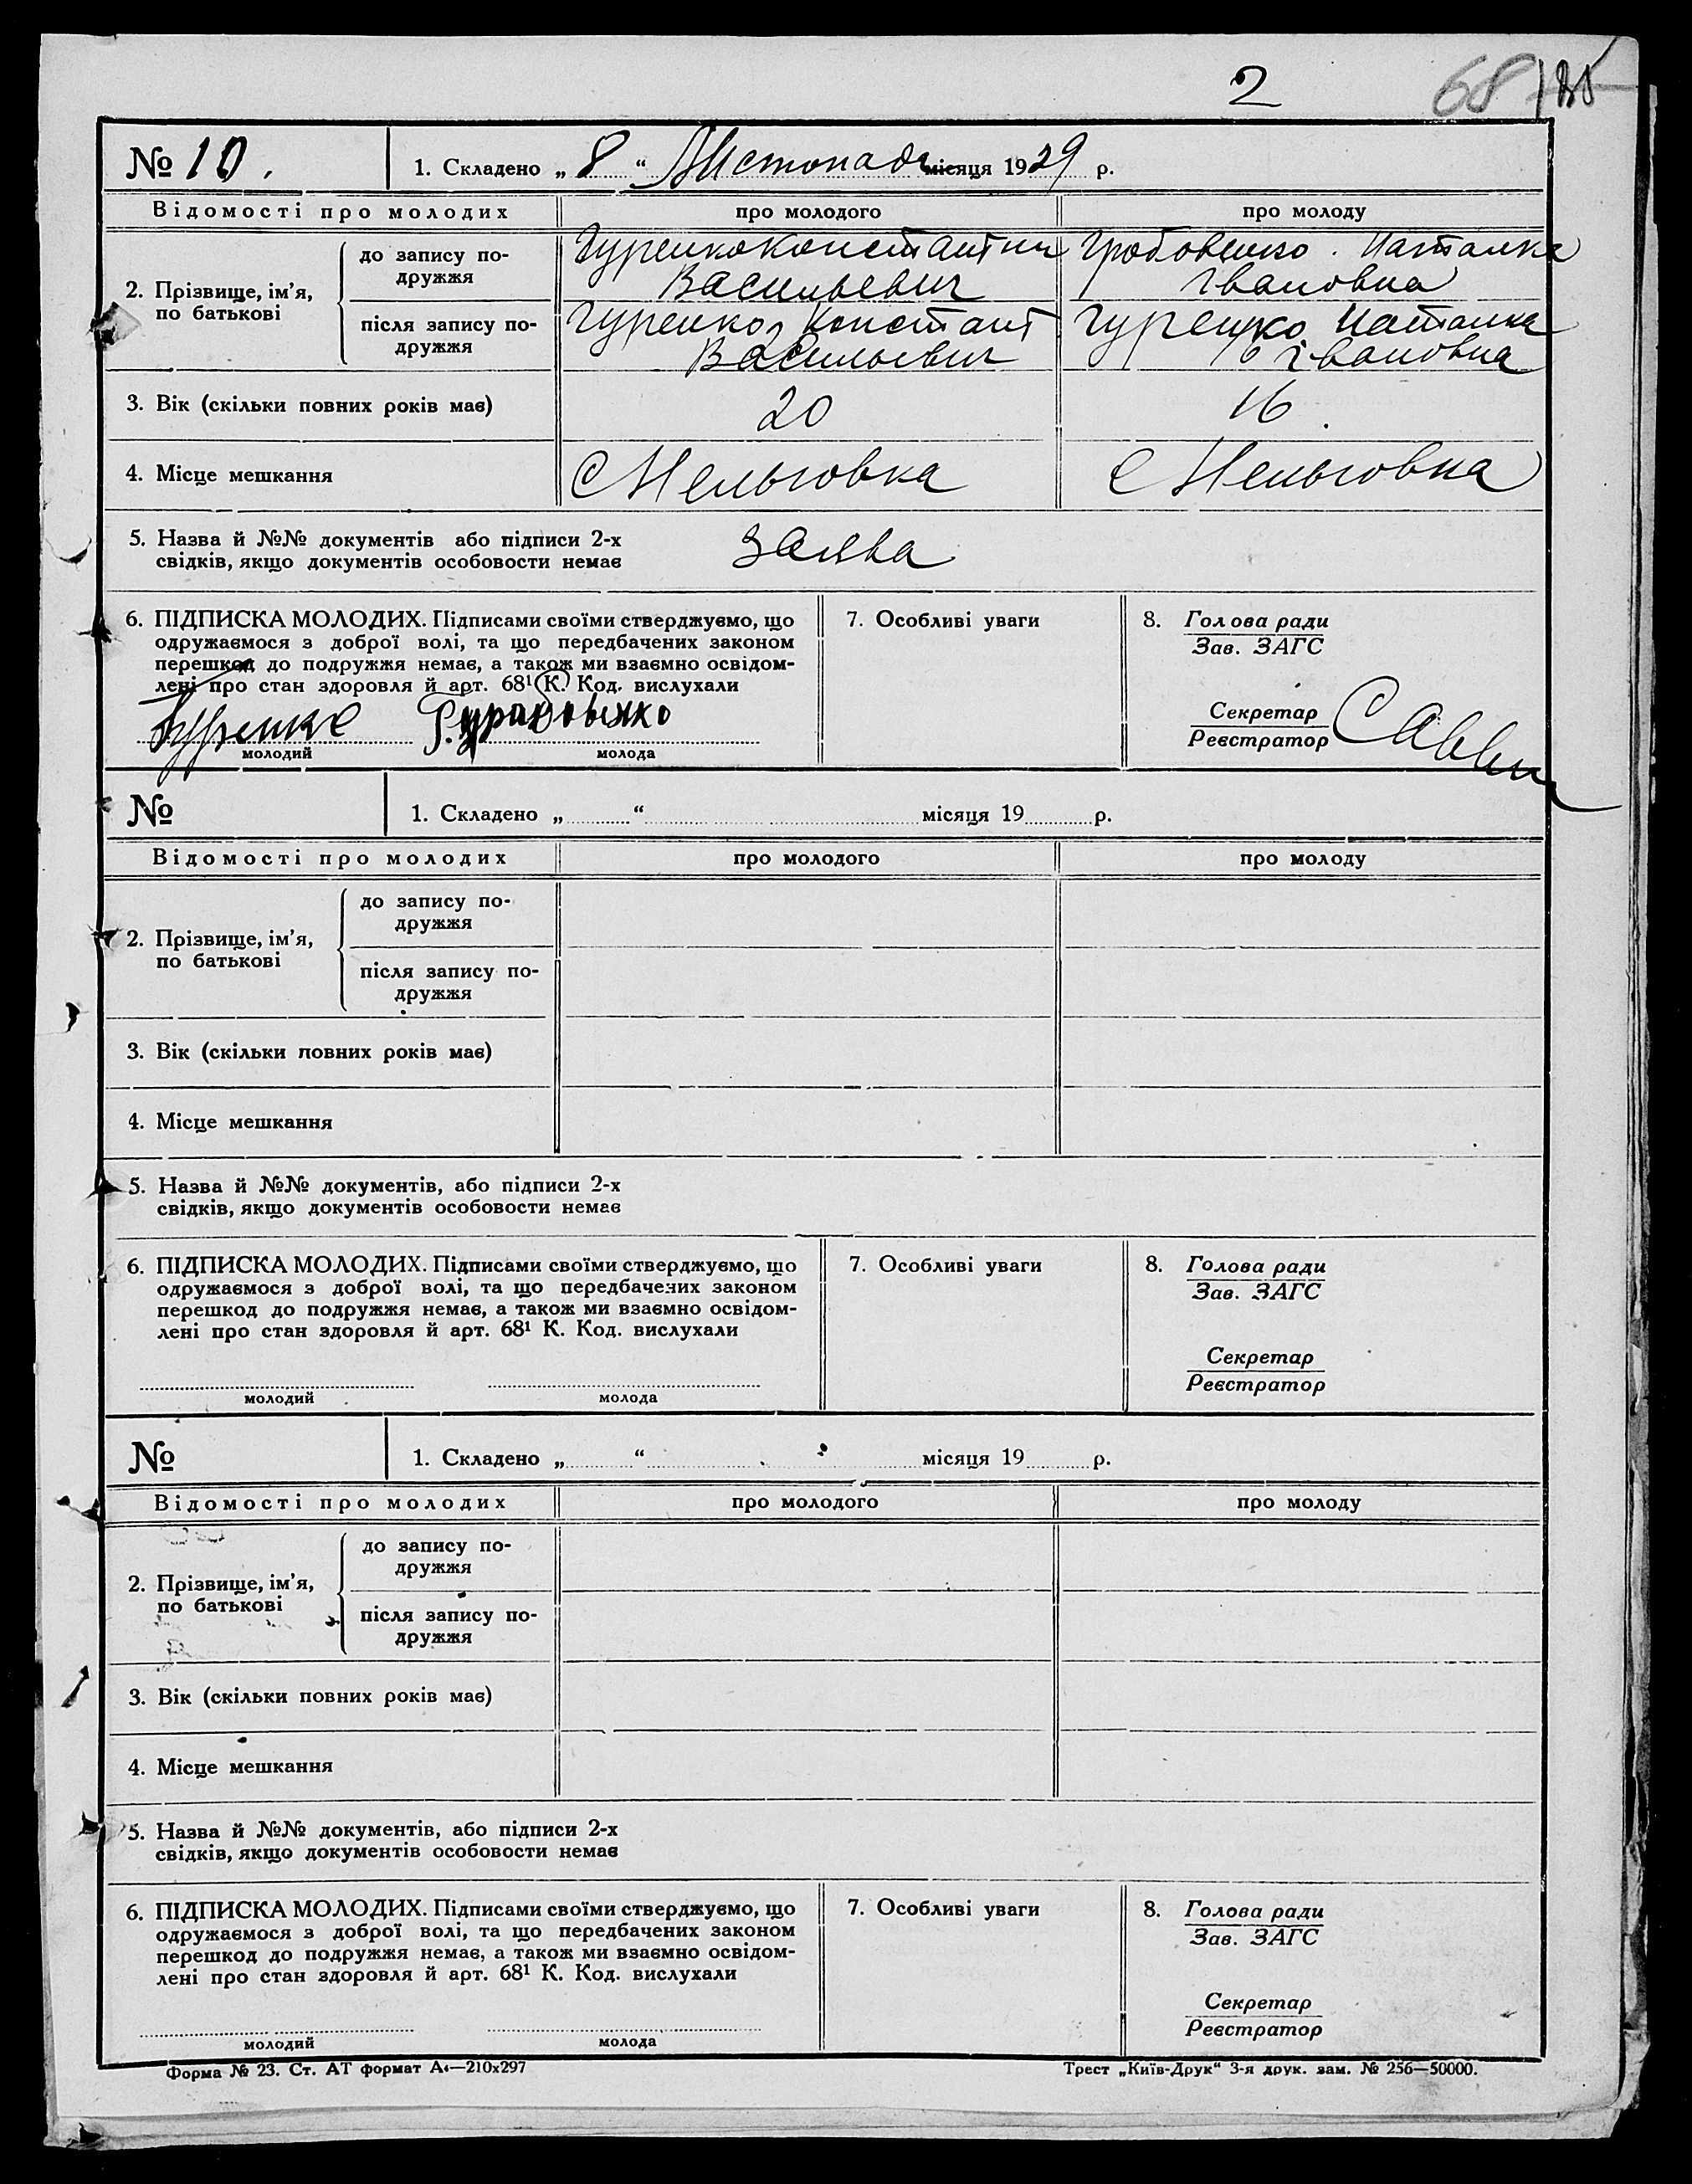 2
68
№ 10.
1. Складено „ 8 “ Листопада місяця 1929 р.
Відомості про молодих
про молодого
про молоду
2. Прізвище, ім’я,
по батькові
до запису по-
дружжя
Гуренко Константин
Васильевич
Гробовенко Наталка
Івановна
після запису по-
дружжя
Гуренко Констант
Васильевич
Гуренко Наталка
Івановна
3. Вік (скільки повних років має)
20
16
4. Місце мешкання
С Мельговка
С Мельговка
5. Назва й №№ документів або підписи 2-х
свідків, якщо документів особовости немає
заява
6. ПІДПИСКА МОЛОДИХ. Підписами своїми стверджуємо, що
одружаємося з доброї волі, та що передбачених законом
перешкод до подружжя немає, а також ми взаємно освідом-
лені про стан здоровля й арт. 68¹ К. Код. вислухали
Гуренко
молодий
молода
7. Особливі уваги
8. Голова ради
Зав. ЗАГС
Секретар
Реєстратор
№
1. Складено „ “ місяця 19 р.
Відомості про молодих
про молодого
про молоду
2. Прізвище, ім’я,
по батькові
до запису по-
дружжя
після запису по-
дружжя
3. Вік (скільки повних років має)
4. Місце мешкання
5. Назва й №№ документів, або підписи 2-х
свідків, якщо документів особовости немає
6. ПІДПИСКА МОЛОДИХ. Підписами своїми стверджуємо, що
одружаємося з доброї волі, та що передбачених законом
перешкод до подружжя немає, а також ми взаємно освідом-
лені про стан здоровля й арт. 68¹ К. Код. вислухали
молодий
молода
7. Особливі уваги
8. Голова ради
Зав. ЗАГС
Секретар
Реєстратор
№
1. Складено „ “ місяця 19 р.
Відомості про молодих
про молодого
про молоду
2. Прізвище, ім’я,
по батькові
до запису по-
дружжя
після запису по-
дружжя
3. Вік (скільки повних років має)
4. Місце мешкання
5. Назва й №№ документів, або підписи 2-х
свідків, якщо документів особовости немає
6. ПІДПИСКА МОЛОДИХ. Підписами своїми стверджуємо, що
одружаємося з доброї волі, та що передбачених законом
перешкод до подружжя немає, а також ми взаємно освідом-
лені про стан здоровля й арт. 68¹ К. Код. вислухали
молодий
молода
7. Особливі уваги
8. Голова ради
Зав. ЗАГС
Секретар
Реєстратор
Форма № 23. Ст. АТ формат А4—210х297
Трест „Київ-Друк“ 3-я друк. зам. № 256—50000.